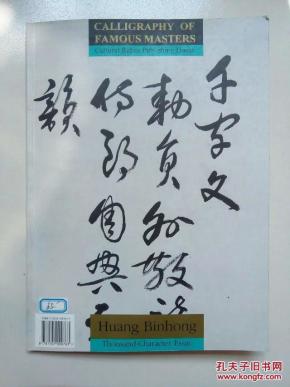 CALLIGRAPHY OF
FAMOUS MASTERS
Cultural Relics Publishing House
千字文
勅員外散
侍郎周興
韻
Huang Binhong
Thousand-Character Essay